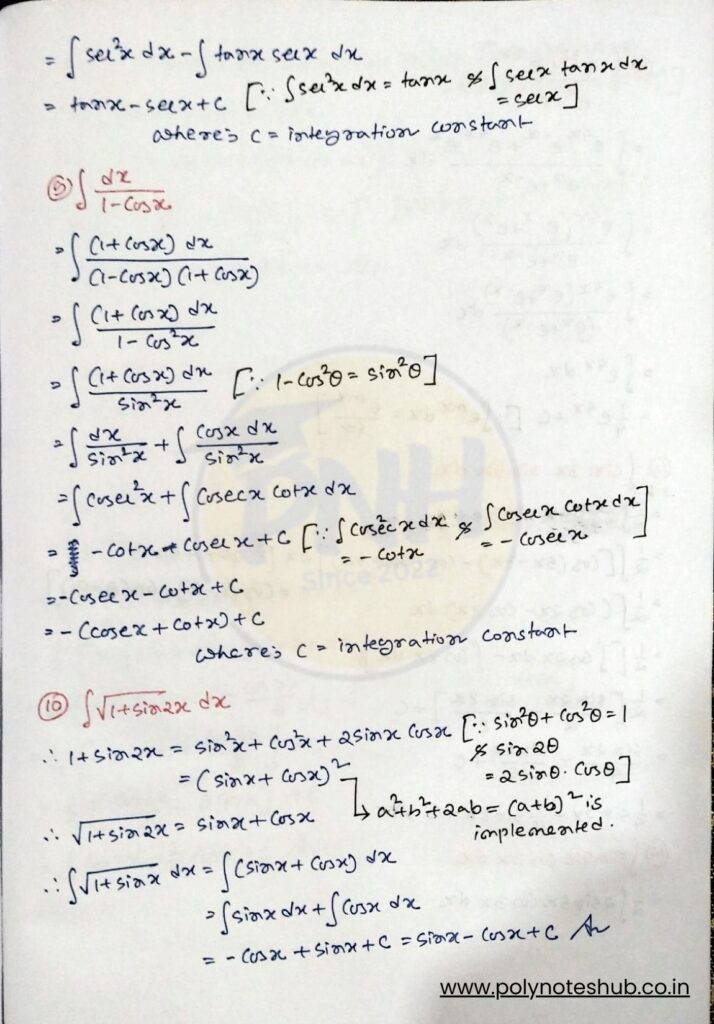 = ∫ sec²x dx - ∫ tanx secx dx
= tanx - secx + c [∵ ∫ sec²x dx = tanx & ∫ secx tanx dx
= secx]
where; c = integration constant
⑨ ∫ dx / 1-cosx
= ∫ (1+cosx) dx / (1-cosx)(1+cosx)
= ∫ (1+cosx) dx / 1-cos²x
= ∫ (1+cosx) dx / sin²x [∵ 1-cos²θ = sin²θ]
= ∫ dx / sin²x + ∫ cosx dx / sin²x
= ∫ cosec²x + ∫ cosecx cotx dx
= - cotx - cosecx + c [∵ ∫ cosec²x dx & ∫ cosecx cotx dx]
= - cotx = - cosecx
= -cosecx - cotx + c
= - (cosex + cotx) + c
where; c = integration constant
⑩ ∫ √1+sin2x dx
∴ 1+sin2x = sin²x + cos²x + 2sinx cosx [∵ sin²θ + cos²θ = 1
& sin2θ
= (sinx + cosx)² = 2sinθ.cosθ]
↳ a²+b²+2ab = (a+b)² is
∴ √1+sin2x = sinx + cosx
implemented.
∴ ∫ √1+sinx dx = ∫ (sinx + cosx) dx
= ∫ sinx dx + ∫ cosx dx
= - cosx + sinx + c = sinx - cosx + c
PNH
Since 2022
www.polynoteshub.co.in